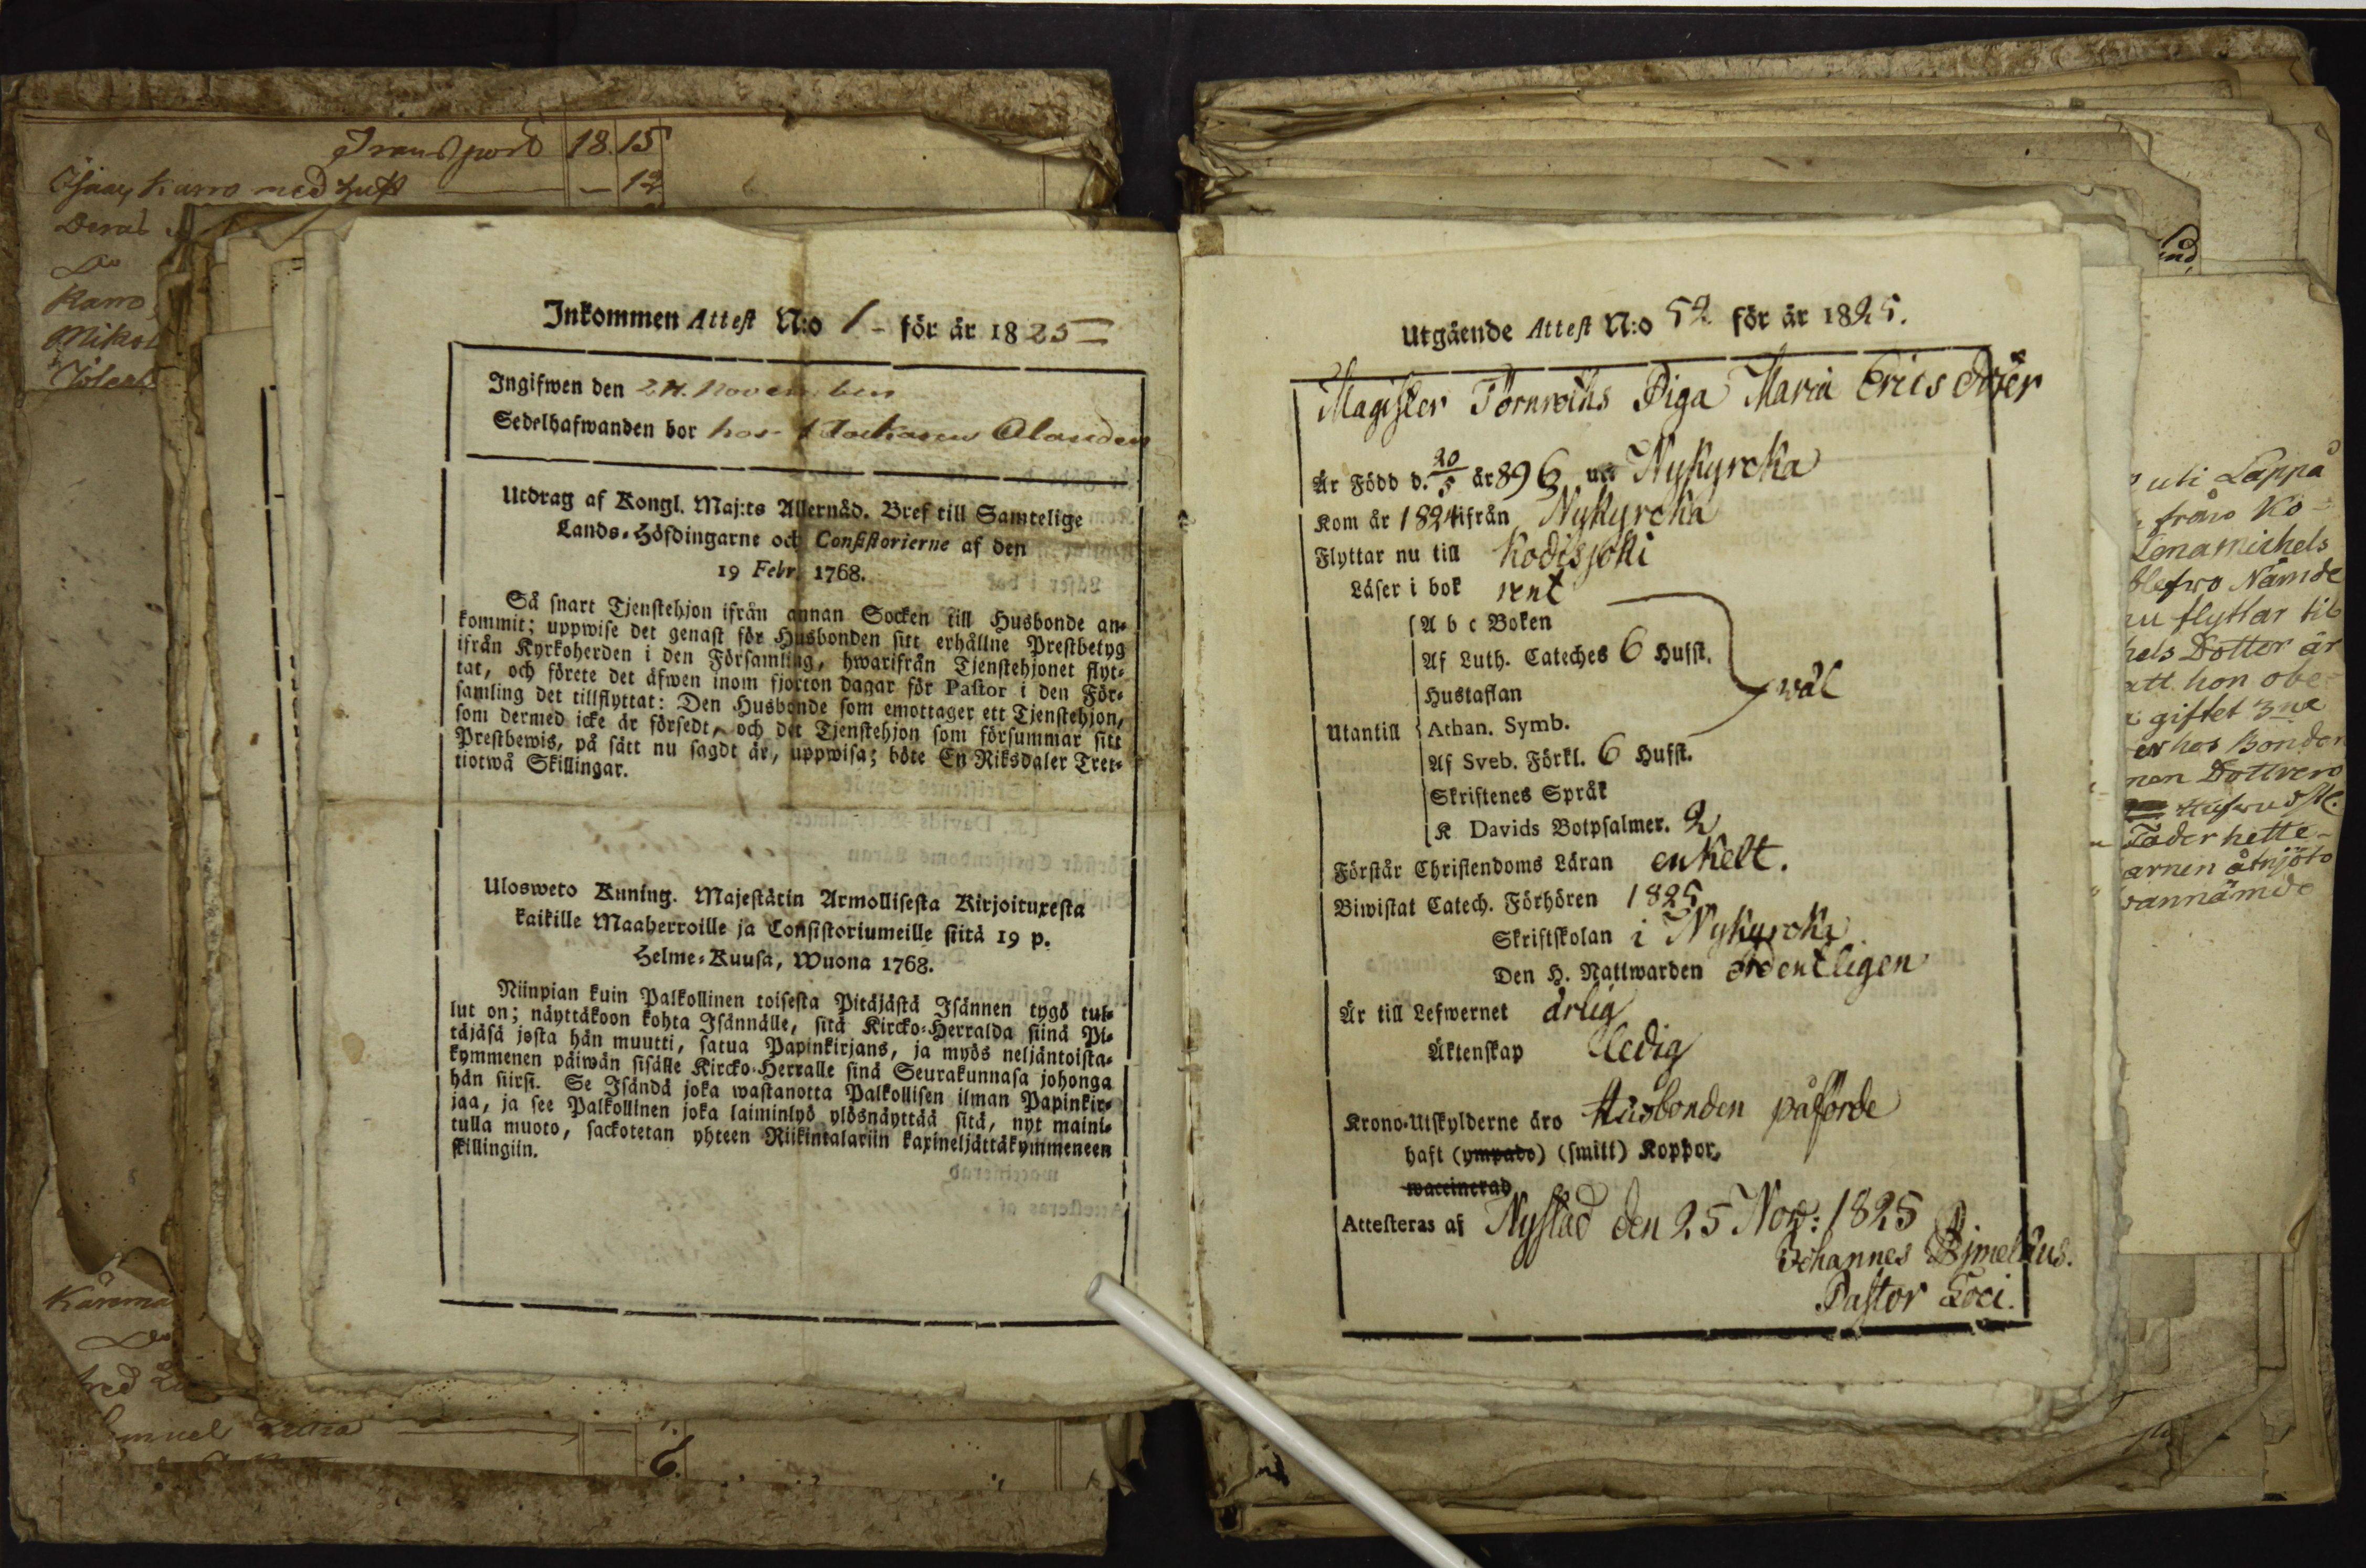 Transport 18. 15
Karro med hust — — 12
Deras
Do
Karro
Mikel
Inkommen Attest N:o 1 - för år 1825
Ingifwen den 24. November
Sedelhafwanden bor hos
Utdrag af Kongl. Maj:ts Allernåd. Bref till Samtelige
Lands-Höfdingarne och Consistorierne af den
19 Febr. 1768.
Så snart Tjenstehjon ifrån annan Socken till Husbonde an-
kommit; uppwise det genast för Husbonden sitt erhållne Prestbetyg
ifrån Kyrkoherden i den Församling, hwarifrån Tjenstehjonet flyt-
tat, och förete det äfwen inom fjorton dagar för Pastor i den För-
samling det tillflyttat: Den Husbonde som emottager ett Tjenstehjon,
som dermed icke är försedt, och det Tjenstehjon som försummar sitt
Prestbewis, på sätt nu sagdt är, uppwisa; böte En Riksdaler Tret-
tiotwå Skillingar.
Ulosweto Kuning. Majestätin Armollisesta Kirjoituxesta
kaikille Maaherroille ja Consistoriumeille siitä 19 p.
Helme-Kuusa, Wuona 1768.
Niinpian kuin Palkollinen toisesta Pitäjästä Isännen tygö tul-
lut on; näyttäkoon kohta Isännälle, sitä Kircko-Herralda siinä Pi-
täjäsä josta hän muutti, saatua Papinkirjans, ja myös neljäntoista-
kymmenen päiwän sisälle Kircko-Herralle sinä Seurakunnasa johonga
hän siirsi. Se Isändä joka wastanotta Palkollisen ilman Papinkir-
jaa, ja see Palkollinen joka laiminlyö ylösnäyttää sitä, nyt maini-
tulla muoto, sackotetan yhteen Riikintalariin kaxineljättäkymmeneen
skillingiin.
Utgående Attest N:o 52 för år 1825.
Magister Törnroths Piga Maria Ericsdotter
Är Född d. 20/5 år 896 uti Nykyrcka
Kom år 1824 ifrån Nykyrcka
Flyttar nu till Kodisjoki
Läser i bok rent
A b c Boken
Af Luth. Cateches 6 Hufst.
Hustaflan wäl
Utantill Athan. Symb.
Af Sveb. Förkl. 6 Hufst.
Skriftenes Språk
K Davids Botpsalmer. 2
Förstår Christendoms Läran enkelt.
Biwistat Catech. Förhören 1825
Skriftskolan i Nykyrcka
Den H. Nattwarden ordentligen
Är till Lefwernet ärlig
Äktenskap ledig
Krono-Utskylderne äro Husbonden påförde
haft (ympade) (smitt) Koppor.
waccinerad
Attesteras af Nystad den 25 Nov: 1825
Johannes
Pastor Loci.
uti Lappå
från Ko-
Lenamichels
blefwo Nämde
nu flyttar til
hels Dotter är
att hon obe-
giftet 3ne
er hos Bonden
nen Dottrero
Fader hette-
arnen åtnjöto
vannämde
Samuel
6.